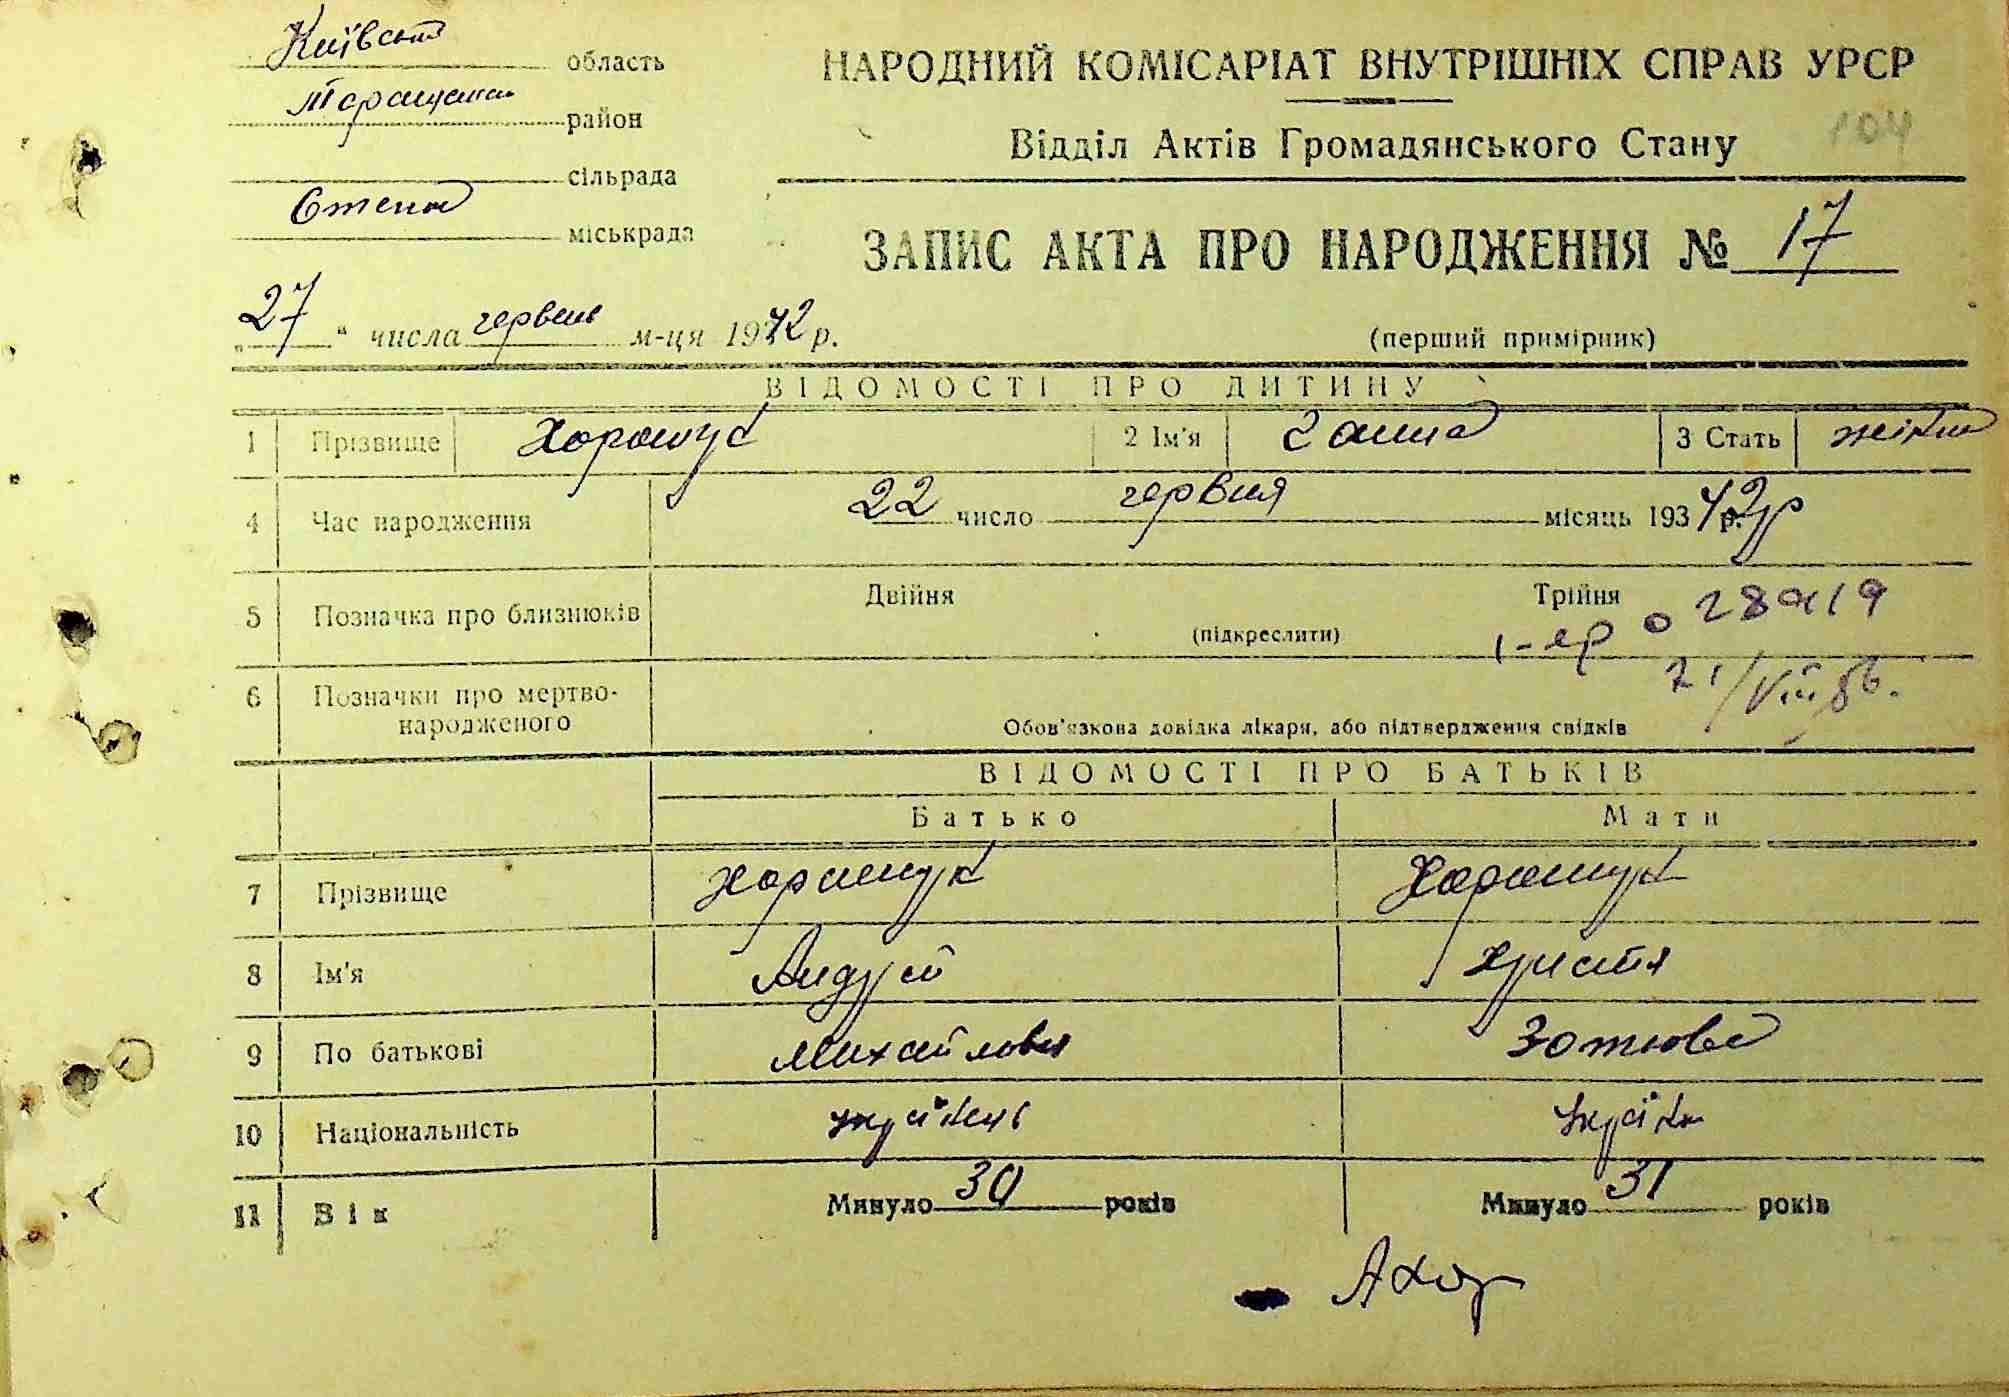 Київська область
Таращанський район
сільрада
Стена міськрада
НАРОДНИЙ КОМІСАРІАТ ВНУТРІШНІХ СПРАВ УРСР
Відділ Актів Громадянського Стану
104
ЗАПИС АКТА ПРО НАРОДЖЕННЯ № 17
„27“ числа червень м-ця 1942 р.
(перший примірник)
ВІДОМОСТІ ПРО ДИТИНУ
1 Прізвище Хоращук 2 Ім'я Ганна 3 Стать жіноч
4 Час народження 22 число червня місяць 193 42 р.
5 Позначка про близнюків Двійня Трійня
(підкреслити)
21/VIII 56.
6 Позначки про мертво-
народженого
Обов'язкова довідка лікаря, або підтвердження свідків
ВІДОМОСТІ ПРО БАТЬКІВ
Батько Мати
7 Прізвище Хоращук Хоращук
8 Ім'я Андрій Христя
9 По батькові Михайлович Зотовна
10 Національність
11 Вік Минуло 30 років Минуло 31 років
АХор